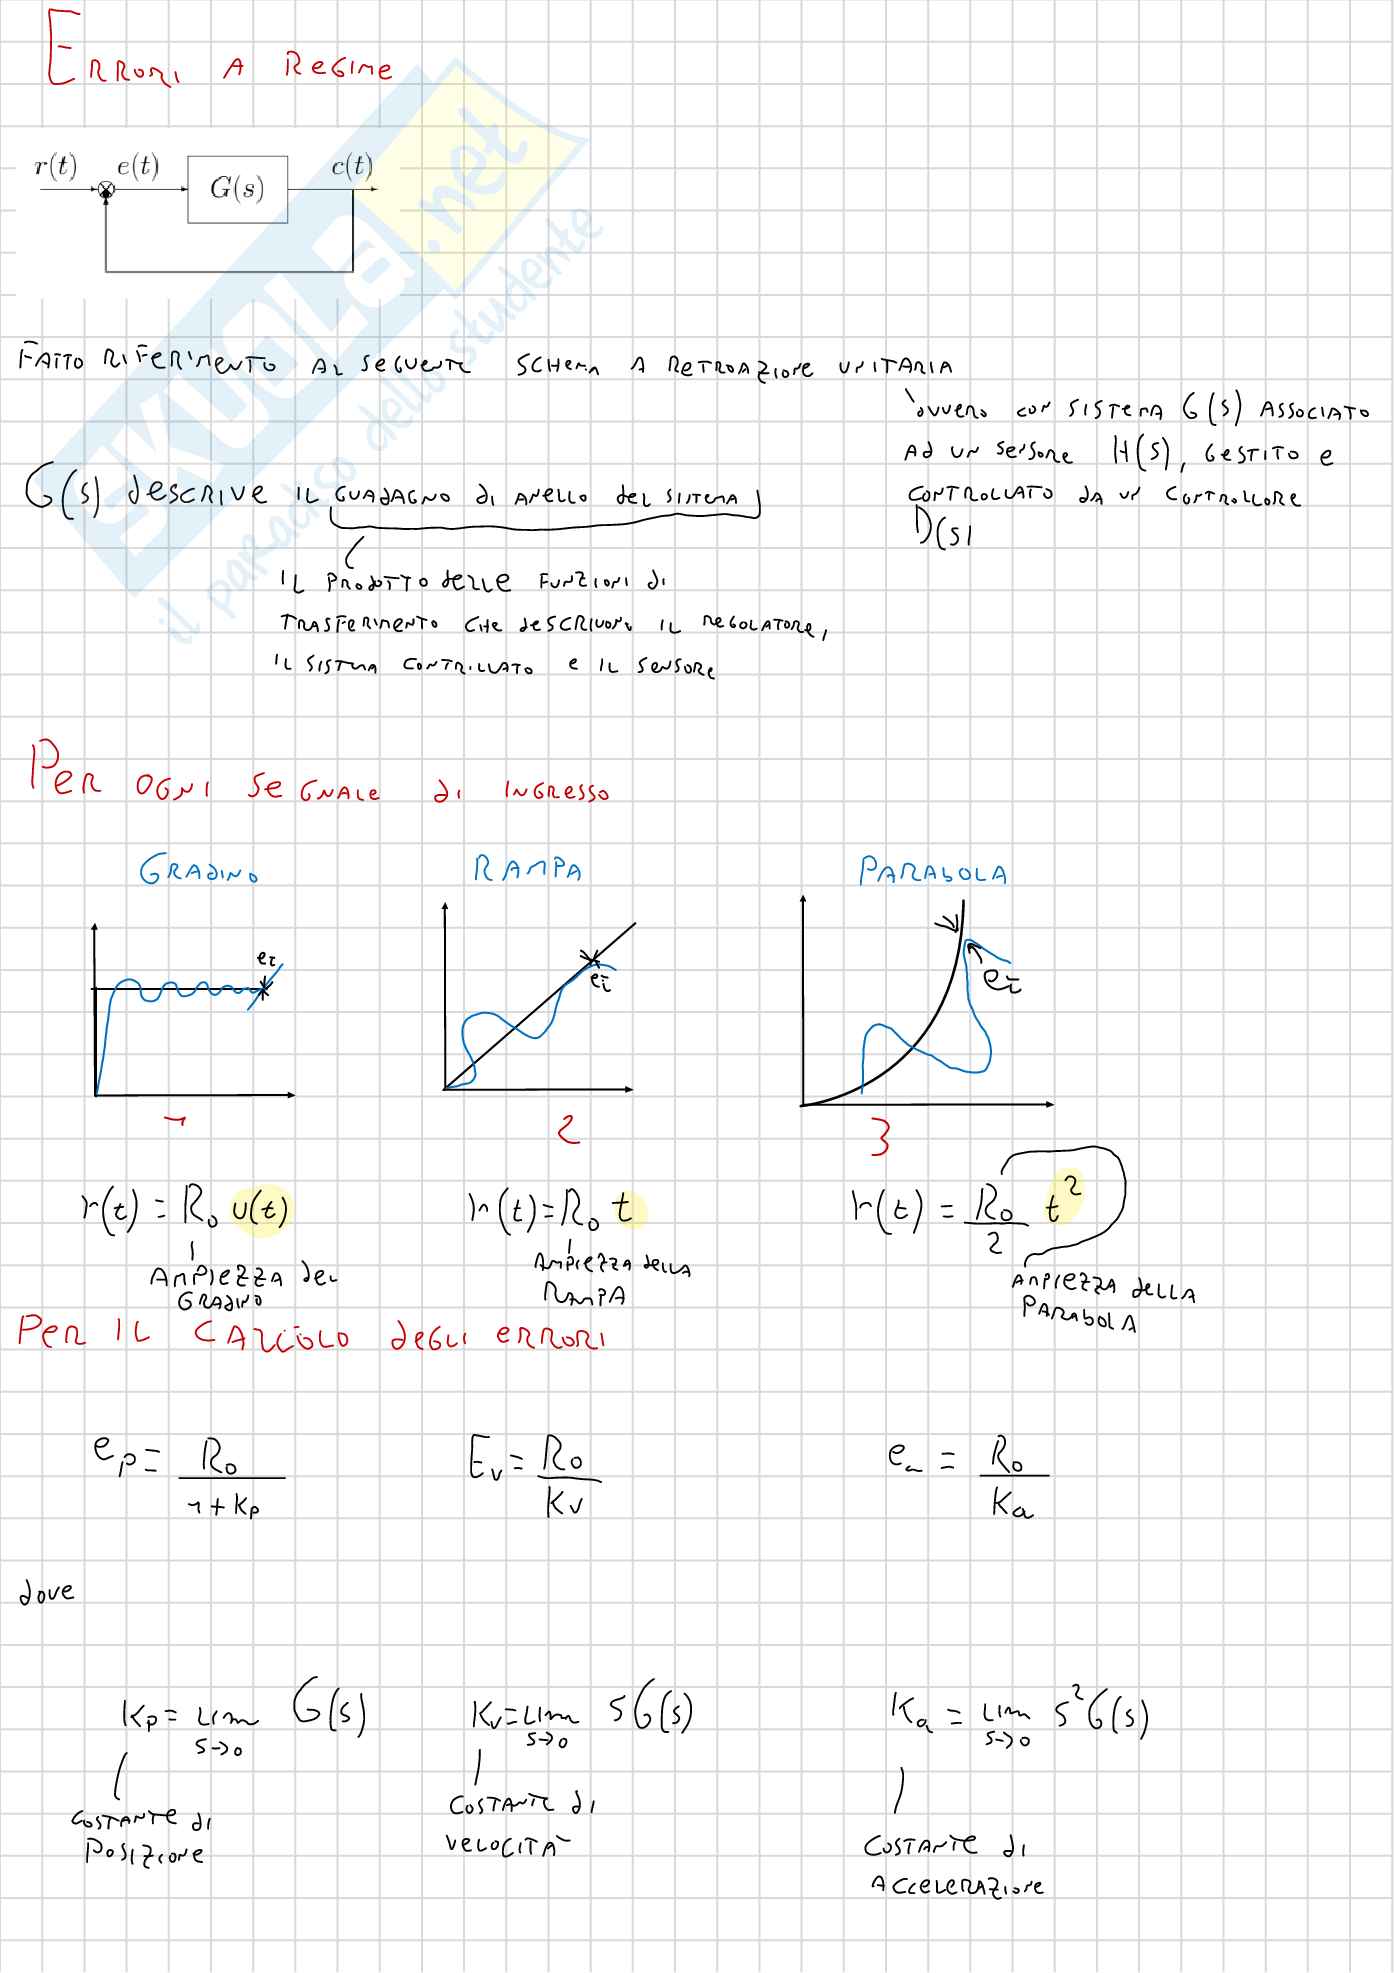 ERRORI A REGIME
r(t) e(t) G(s) c(t)
FATTO RIFERIMENTO AL SEGUENTE SCHEMA A RETROAZIONE UNITARIA
OVVERO CON SISTEMA G(S) ASSOCIATO
AD UN SENSORE H(S), GESTITO E
CONTROLLATO DA UN CONTROLLORE
D(S)
G(S) DESCRIVE IL GUADAGNO DI ANELLO DEL SISTEMA
IL PRODOTTO DELLE FUNZIONI DI
TRASFERIMENTO CHE DESCRIVONO IL REGOLATORE,
IL SISTEMA CONTRILLATO E IL SENSORE
PER OGNI SEGNALE DI INGRESSO
GRADINO RAMPA PARABOLA
ei ei ei
1 2 3
r(t) = R₀ u(t) r(t) = R₀ t r(t) = R₀/2 t²
AMPIEZZA DEL
GRADINO
AMPIEZZA DELLA
RAMPA
AMPIEZZA DELLA
PARABOLA
PER IL CALCOLO DEGLI ERRORI
e_p = R₀/(1+K_p) E_v = R₀/K_v e_a = R₀/K_a
dove
K_p = LIM s→0 G(s) K_v = LIM s→0 sG(s) K_a = LIM s→0 s²G(s)
COSTANTE DI
POSIZIONE
COSTANTE DI
VELOCITÀ
COSTANTE DI
ACCELERAZIONE
SKUOLA.net
il paradiso dello studente